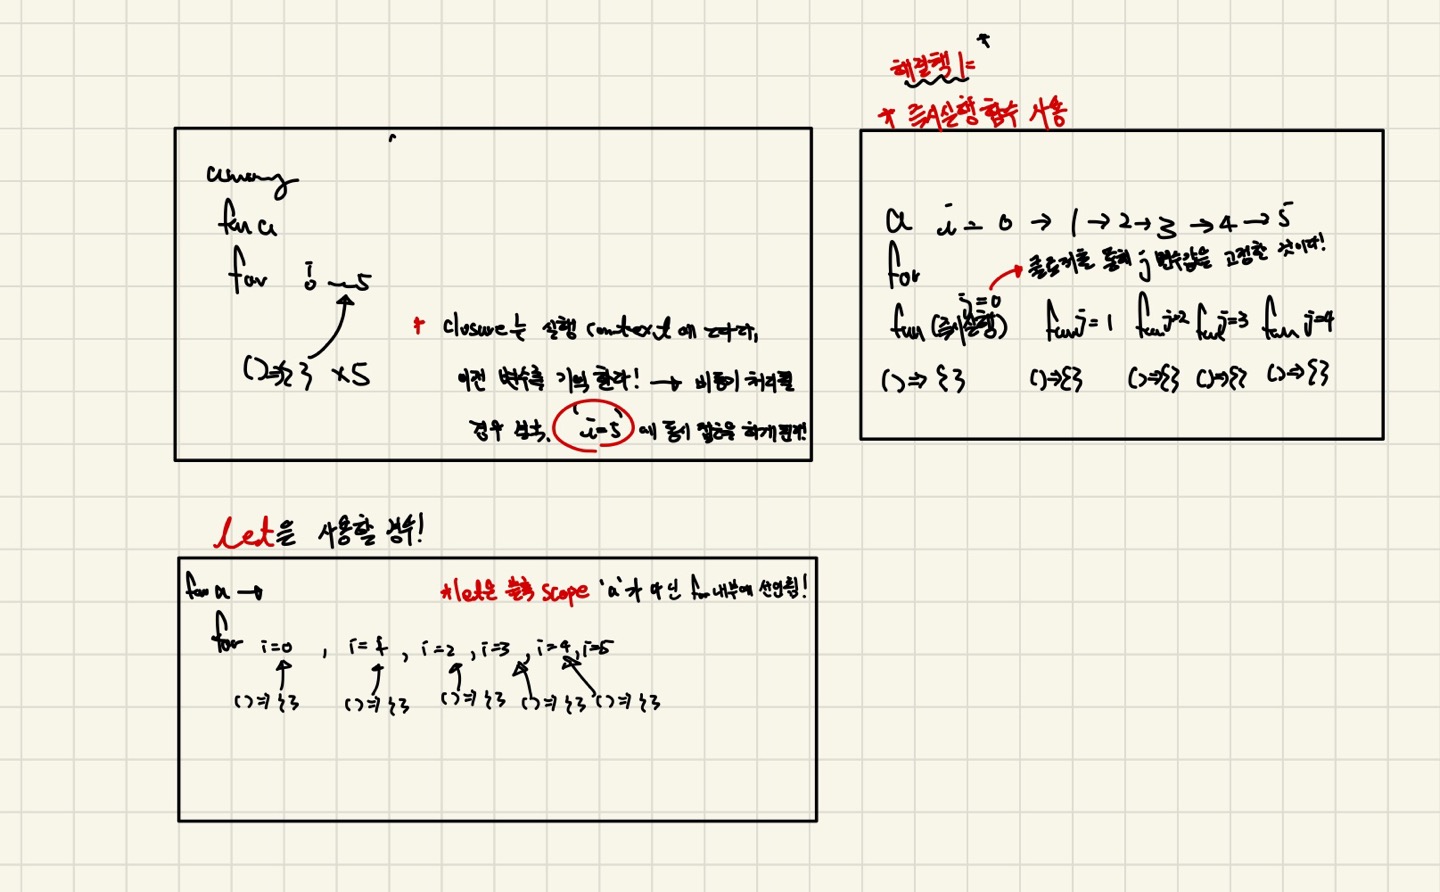 fun a
for i
0 — 5
()=>{} ×5
* closure는 실행 context에 따라,
이전 변수를 기억한다! → 비동기 처리할
경우 보통, i=5 에 동시 접근을 하게된다!
해결책 1=
* 즉시실행함수 사용
a i = 0 → 1 → 2 → 3 → 4 → 5
for
클로저를 통해 j 변수값을 고정한 것이다!
j=0
fun (즉시실행) fun j=1 fun j=2 fun j=3 fun j=4
()=>{} ()=>{} ()=>{} ()=>{} ()=>{}
let을 사용할 경우!
fun a →
*let은 블록 scope 'a'가 아닌 for 내부에 선언됨!
for i=0 , i=1 , i=2 , i=3 , i=4 , i=5
()=>{} ()=>{} ()=>{} ()=>{} ()=>{}